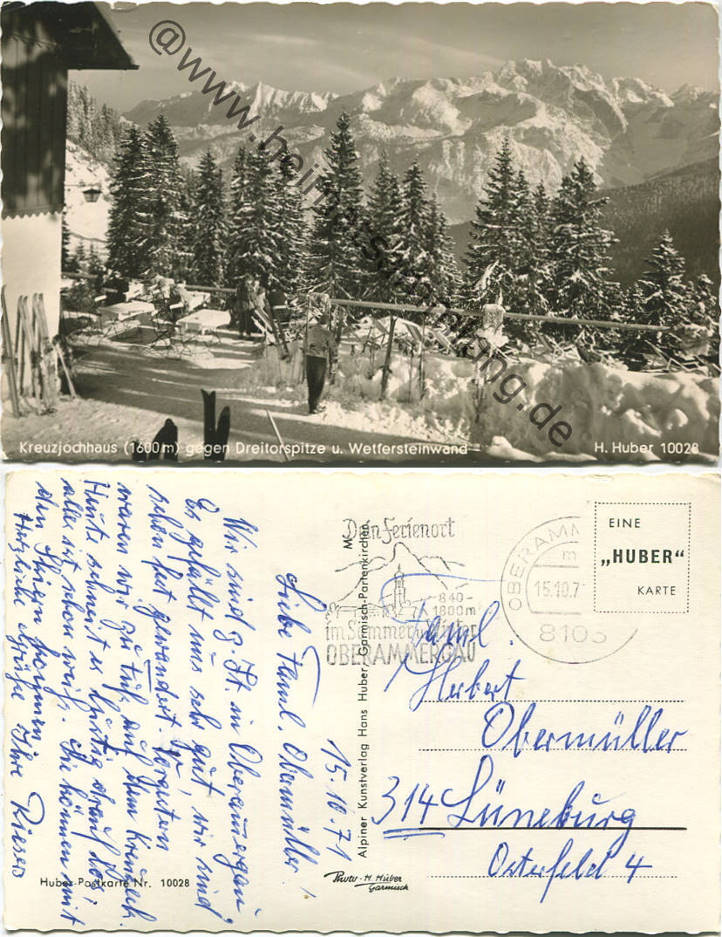 @www.heimatsammlung.de
Kreuzjochhaus (1600m) gegen Dreitorspitze u. Wettersteinwand
H. Huber 10028
15. 10. 71
Liebe Faml. Obermüller!
Wir sind z. Zt. in Oberamergau,
Es gefällt uns sehr gut, wir sind
schon fest gewandert. Vorgestern
waren wir zu Fuß auf dem Kreuzjoch.
Heute schneit es lustig drauf los,
alles ist schon weiß. Ihr können mit
den Skiern kommen.
Herzliche Grüße Ihre
Huber-Postkarte Nr. 10028
Photo-H. Huber
Garmisch
Alpiner Kunstverlag Hans Huber, Garmisch-Partenkirchen
Dein Ferienort
840-
1800m
im Sommer u. Winter
OBERAMMERGAU
OBERAMM
15.10.7
8103
EINE
„HUBER"
KARTE
Faml.
Herbert
Obermüller
314 Lüneburg
Osterfeld 4